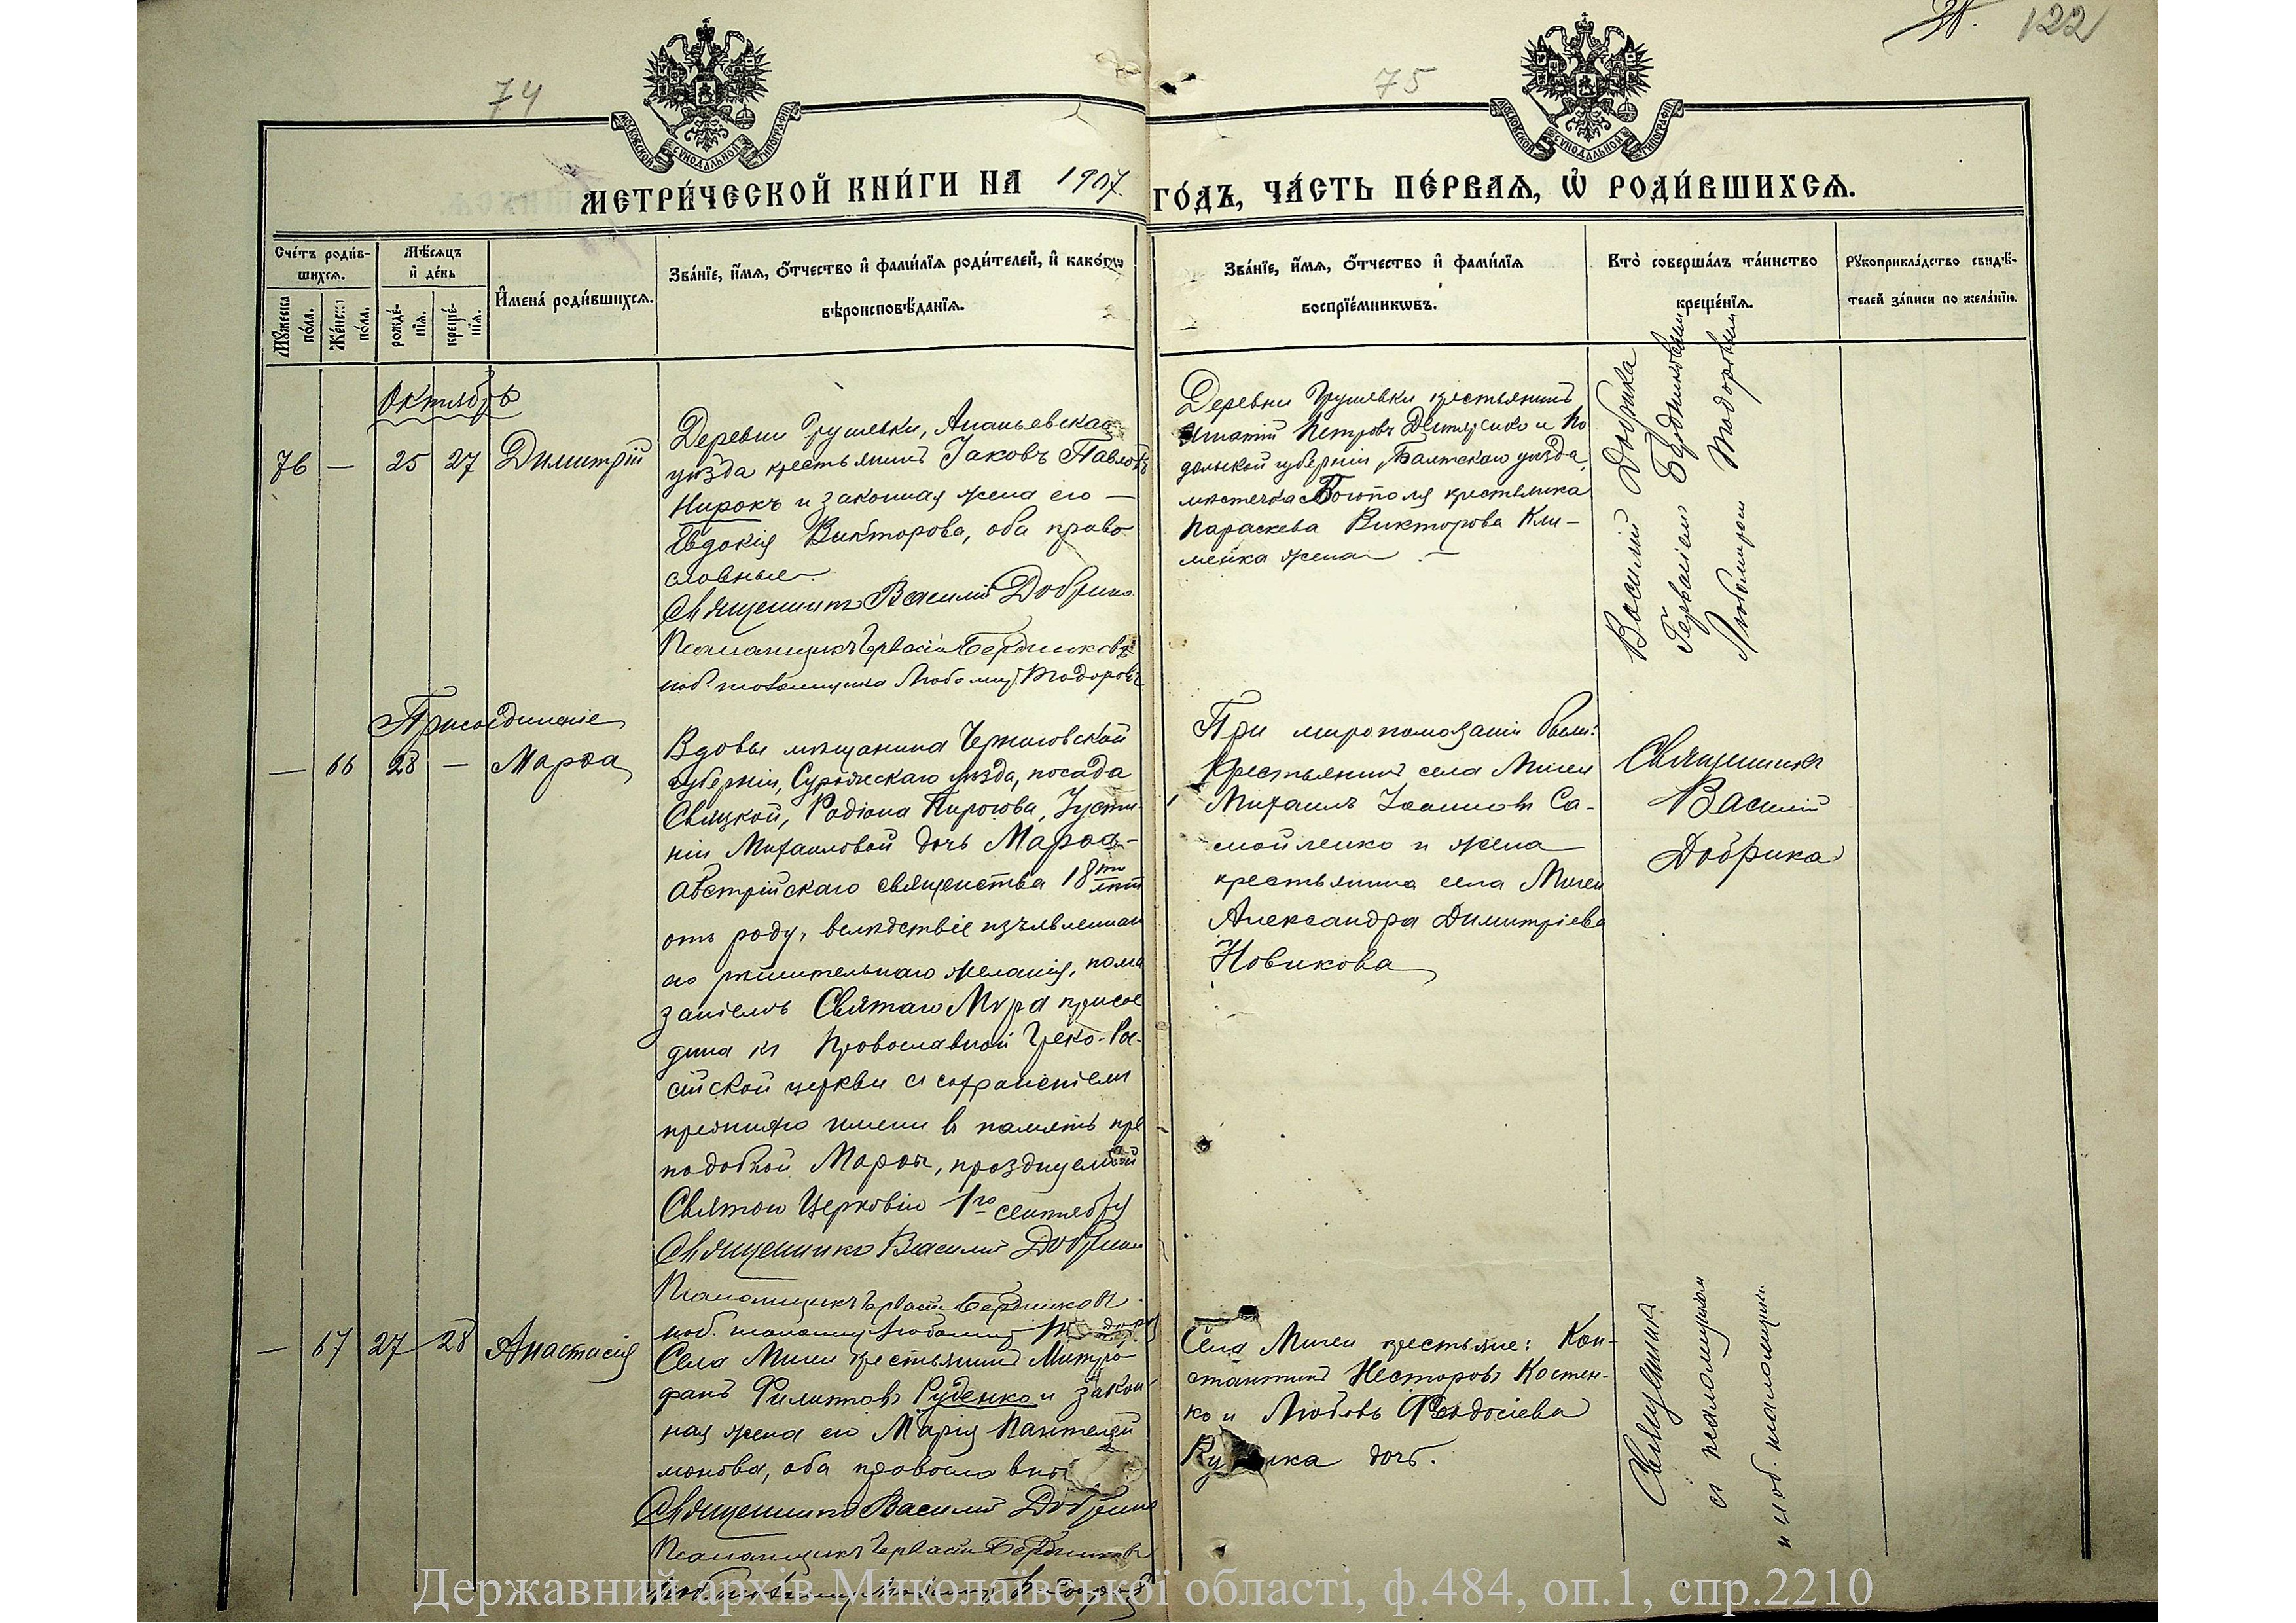 74
75
122
МОСКОВСКОЙ СУНОДАЛЬНОЙ ТИПОГРАФІИ
МОСКОВСКОЙ СУНОДАЛЬНОЙ ТИПОГРАФІИ
МЕТРИ́ЧЕСКОЙ КНИ́ГИ НА 1907 ГО́ДЪ, ЧА́СТЬ ПЕ́РВАѦ, Ѡ҆ РОДИ́ВШИХСѦ.
Сче́тъ роди́в-
шихсѧ.
Мꙋжеска по́ла.
Же́нск. по́ла.
Мѣ́сѧцъ
и҆ де́нь
рожде́-
нїѧ.
креще́-
нїѧ.
И҆мена́ роди́вшихсѧ.
Зва́нїе, и҆́мѧ, ѻ҆́тчество и҆ фами́лїѧ роди́телей, и҆ како́гѡ
вѣроисповѣ́данїѧ.
Зва́нїе, и҆́мѧ, ѻ҆́тчество и҆ фами́лїѧ
воспрїе́мникѡвъ.
Кто̀ соверша́лъ та́инство
креще́нїѧ.
Рꙋкоприкла́дство свидѣ́-
телей за́писи по жела́нїю.
Октябрь
76 — 25 27 Димитрій
Деревни Грушевки, Ананьевскаго
уѣзда крестьянинъ Іаковъ Павловъ
Нирокъ и законная жена его —
Евдокія Викторова, оба право
славные
Священникъ Василій Добрика
Псаломщикъ Гервасій Бердниковъ
иоб. псаломщика Любомиръ Тодоровъ
Деревни Грушевки крестьянинъ
Игнатій Петровъ и По
дольской губерніи, Балтскаго уѣзда,
мѣстечка Богополя крестьянка
Параскева Викторова Кли-
менка жена —
Василій Добрика
Гервасіемъ Бердниковымъ
Любомиромъ Тодоровымъ
Присоединеніе
— 66 28 — Марѳа
Вдовы мѣщанина Черниговской
губерніи, Суражскаго уѣзда, посада
Святской, Родіона Пирогова, Іусти-
ніи Михаиловой дочь Марѳа —
австрійскаго священства 18ти лѣтъ
отъ роду, вслѣдствіе изъявленна
го рѣшительнаго желанія, пома
заніемъ Святаго Мѵра присое
динена къ Православной Греко-Рос-
сійской церкви съ сохраненіемъ
прежняго имени въ память пре
подобной Марѳы, празднуемой
Святою Церковію 1го сентября
Священникъ Василій Добрика
Псаломщикъ Гервасій Бердниковъ
иоб. псаломщ. Любомиръ
При миропомазаніи были:
Крестьянинъ села Мигеи
Михаилъ Іоанновъ Са-
мойленко и жена
крестьянина села Мигеи
Александра Димитріева
Новикова
Священникъ
Василій
Добрика
— 67 27 28 Анастасія
Села Мигеи крестьянинъ Митро
фанъ Филиповъ Руденко и закон
ная жена его Марія Пантелей
монова, оба православные
Священникъ Василій Добрика
Псаломщикъ Гервасій Бердниковъ
Села Мигеи крестьяне: Кон-
стантинъ Несторовъ Костен-
ко и Любовь Ѳеодосіева
дочь.
Священникъ
съ псаломщикомъ
и иоб. псаломщика
Державний архів Миколаївської області, ф.484, оп.1, спр.2210